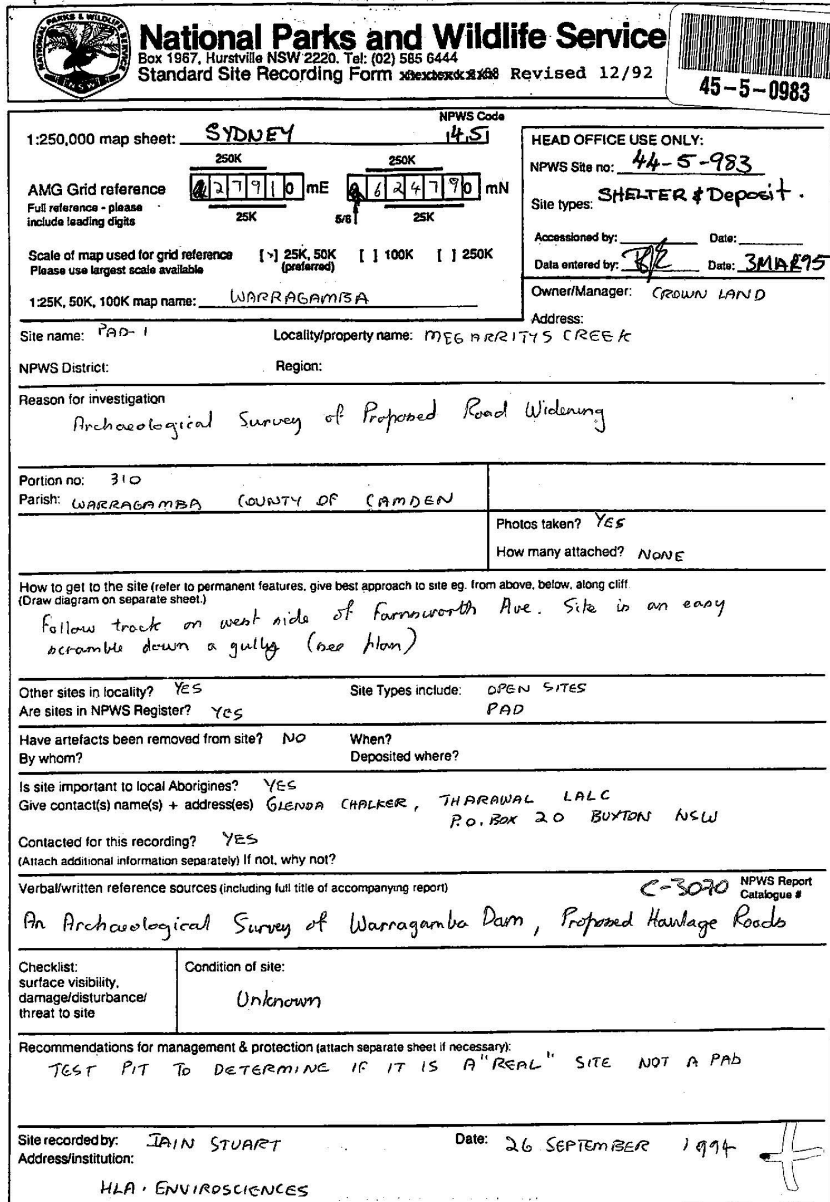 National Parks and Wildlife Service
Box 1967, Hurstville NSW 2220. Tel: (02) 585 6444
Standard Site Recording Form Revised 12/92
45-5-0983
NATIONAL PARKS & WILDLIFE SERVICE
N.S.W.
1:250,000 map sheet: SYDNEY
NPWS Code
1451
250K 250K
AMG Grid reference 27910 mE 624790 mN
Full reference - please
include leading digits
25K 5/6 25K
Scale of map used for grid reference [ ] 25K, 50K [ ] 100K [ ] 250K
Please use largest scale available (preferred)
1:25K, 50K, 100K map name: WARRAGAMBA
HEAD OFFICE USE ONLY:
NPWS Site no: 44-5-983
Site types: SHELTER & Deposit.
Accessioned by: Date:
Data entered by: Date: 3MAR95
Owner/Manager: CROWN LAND
Address:
Site name: PAD-1 Locality/property name: MEGARRITYS CREEK
NPWS District: Region:
Reason for investigation
Archaeological Survey of Proposed Road Widening
Portion no: 310
Parish: WARRAGAMBA COUNTY OF CAMDEN
Photos taken? YES
How many attached? NONE
How to get to the site (refer to permanent features, give best approach to site eg. from above, below, along cliff.
(Draw diagram on separate sheet.)
Follow track on west side of Farnsworth Ave. Site is an easy
scramble down a gully (see plan)
Other sites in locality? YES Site Types include: OPEN SITES
Are sites in NPWS Register? YES PAD
Have artefacts been removed from site? NO When?
By whom? Deposited where?
Is site important to local Aborigines? YES
Give contact(s) name(s) + address(es) GLENDA CHALKER, THARAWAL LALC
P.O. BOX 20 BUXTON NSW
Contacted for this recording? YES
(Attach additional information separately) If not, why not?
Verbal/written reference sources (including full title of accompanying report) C-3070 NPWS Report
Catalogue #
An Archaeological Survey of Warragamba Dam, Proposed Haulage Roads
Checklist:
surface visibility,
damage/disturbance/
threat to site
Condition of site:
Unknown
Recommendations for management & protection (attach separate sheet if necessary):
TEST PIT TO DETERMINE IF IT IS A "REAL" SITE NOT A PAD
Site recorded by: IAIN STUART Date: 26 SEPTEMBER 1994
Address/institution:
HLA. ENVIROSCIENCES